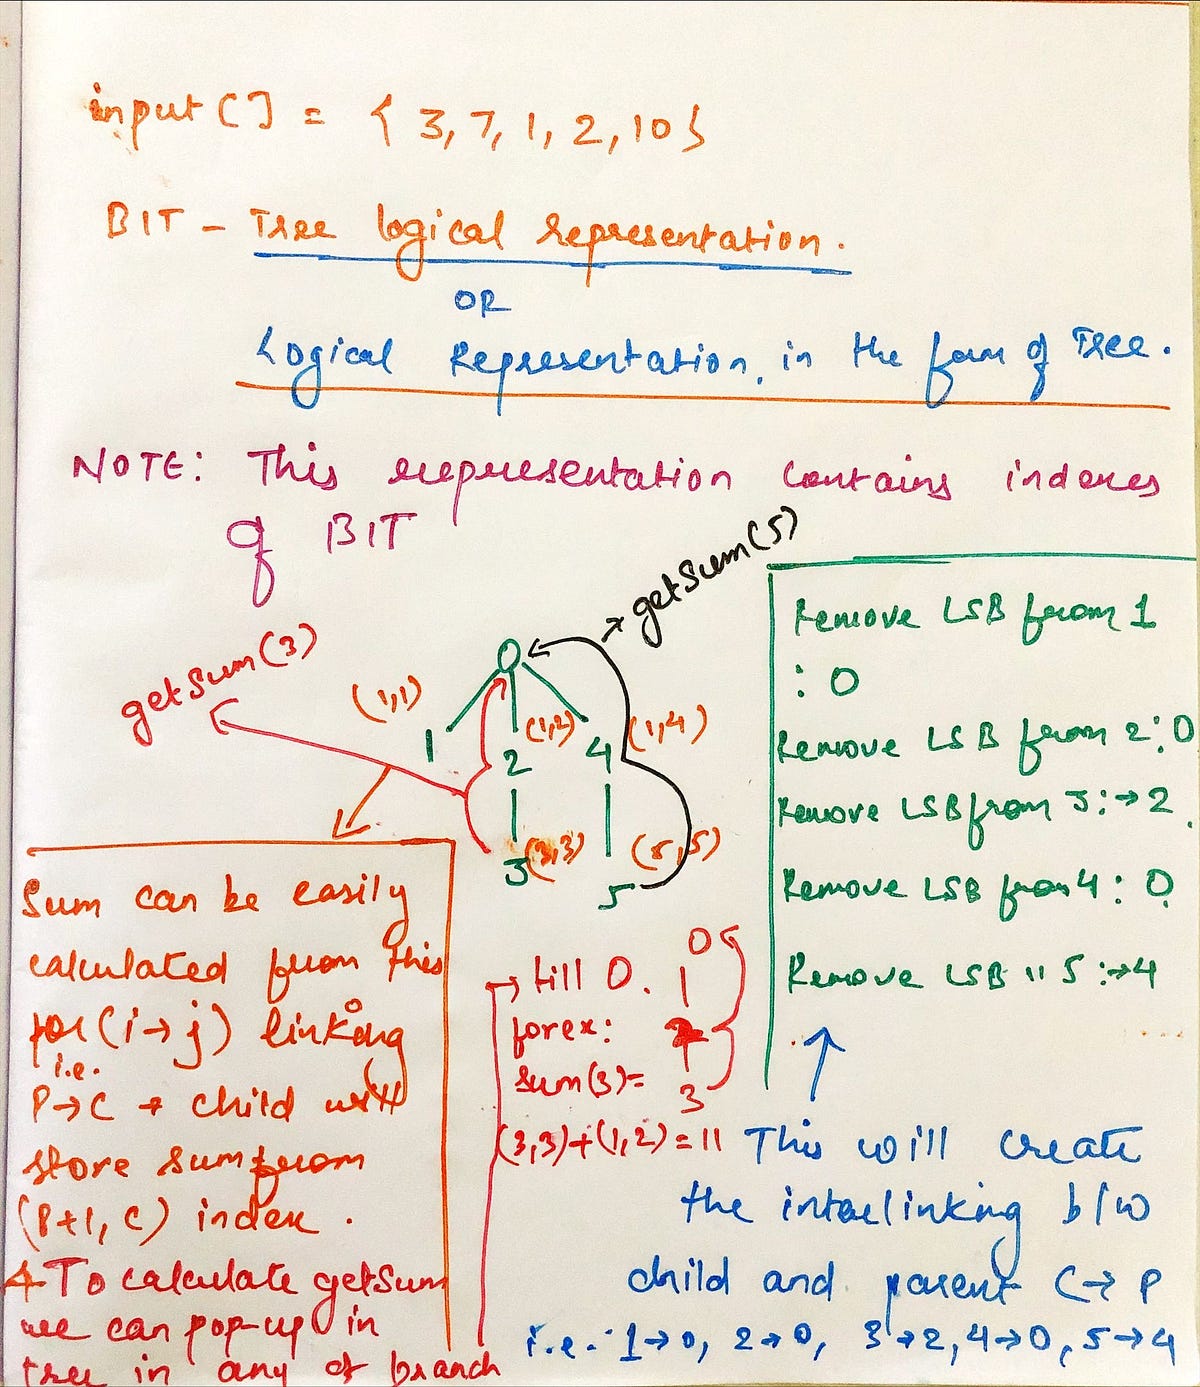 input [] = { 3, 7, 1, 2, 10 }
BIT - Tree logical representation.
OR
Logical Representation, in the form of Tree.
NOTE: This representation contains indexes
of BIT
getSum(5)
getSum(3)
0
(1,1)
(1,2)
(1,4)
1
2
4
(3,3)
(5,5)
3
5
Remove LSB from 1
: 0
Remove LSB from 2: 0
Remove LSB from 3: → 2
Remove LSB from 4: 0
Remove LSB " 5: → 4
Sum can be easily
calculated from this
for (i → j) linking
i.e.
P → C → child will
store sum from
(P+1, C) index.
To calculate getSum
we can pop-up in
tree in any of branch
→ till 0.
forex:
sum(3) =
0
2
3
(3,3)+(1,2) = 11
This will create
the interlinking b/w
child and parent C → P
i.e. 1→0, 2→0, 3→2, 4→0, 5→4